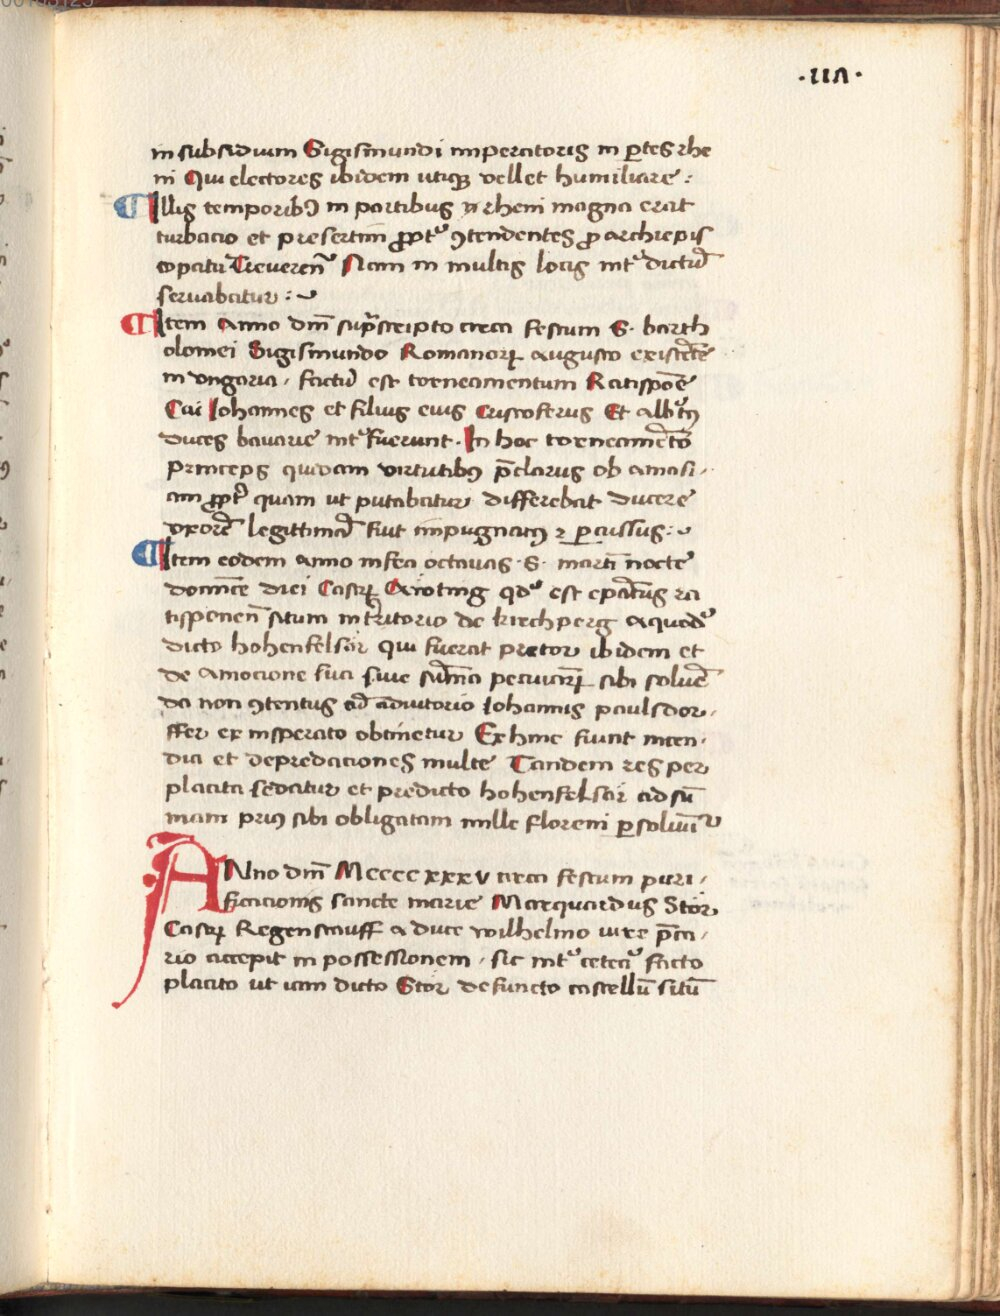 ·117·
in subsidium Sigismundi imperatoris in ꝑtes rhe
ni Qui electores ibidem utiqꝫ vellet humiliare :
¶ Illis temporibꝰ in partibus rheni magna erat
turbacio et presertim ꝓpt' ꝯtendentes ꝓ archiepis
copatu Treueren̄ Nam in multis locis int' dictū
seruabatur :
¶ Item Anno dm̄ sup̄scripto circa festum S. barth
olomei Sigismundo Romanorꝝ augusto existēte
in ungaria, factū est torneamentum Ratispōe
Cui Johannes et filius eius Cristoferus Et albtꝰ
duces bauarie int' fuerunt. In hoc torneamēto
princeps quidam virtutibꝰ p̄clarus ob amasi,
am ꝓpt' quam ut putabatur differebat ducere
vxorē legittimā fuit inpugnatꝰ ⁊ ꝑcussus :
¶ Item eodem Anno infra octauas S. marti nocte
domīce diei Castrꝝ Aioting qd' est ep̄atus ra
tisponen̄ situm in t'ritorio de kirchperg a quod'
dicto hohenfelsär qui fuerat pretor ibidem et
de amocione sua siue sūma pecuniarꝝ sibi soluē
da non ꝯtentus ad adiutorio Johannis paulsdor,
ffer ex insperato obtinetur Ex hinc fiunt incen,
dia et depredaciones multe Tandem res per
placita sedatur et predicto hohenfelsär ad sū
mam priꝰ sibi obligatam mille floreni ꝑsoluūt'
ANno dm̄ Mccccxxxv circa festum puri,
ficacionis sancte marie Marquardus Stör
Castrꝝ Regenstauff a duce wilhelmo iure p̄ca,
rio accepit in possessionem, sic int' cetera' facto
placito ut iam dicto Stör defuncto castellū sitū